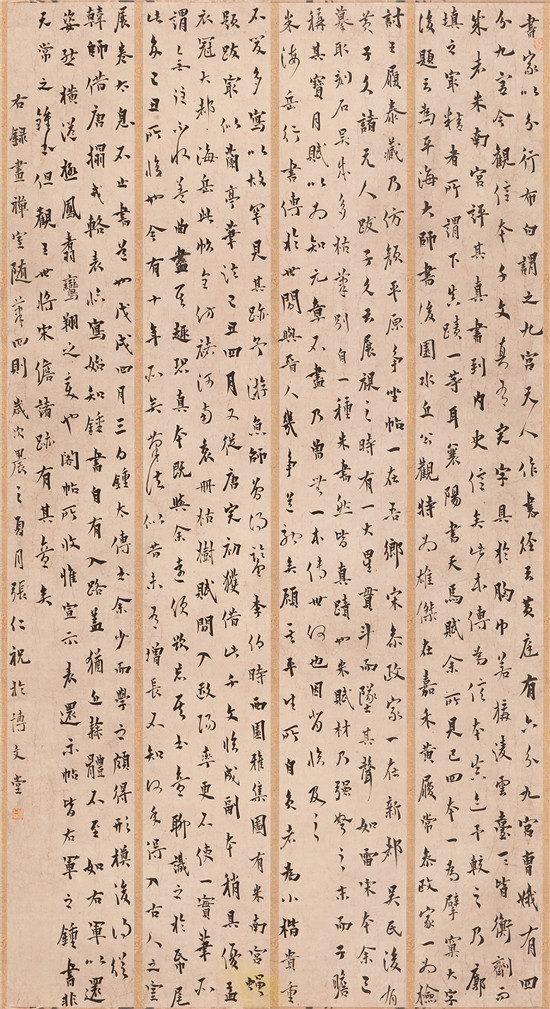 書家以分行布白謂之九宮元人作書經云黃庭有六分九宮曹娥有四
分九宮今觀信本千文真有完字具於胸中若構凌雲臺一一皆衡劑而
成者米南宮評其真書到內史信矣此本傳為信本真迹予較之乃廓
填之最精者所謂下真蹟一等耳襄陽書天馬賦余所見已四本一為擘窠大字
後題云為平海大師書後園水丘公觀特為雄傑在嘉禾黃履常參政家一為檢
討王履泰藏乃仿顏平原爭坐帖一在吾鄉宋參政家一在新都吳氏後有
黃子久諸元人跋子久云展視之時有一大星貫斗而墜其聲如雷宋本余已
摹取刻石吳本多枯筆別自一種米書然皆真蹟也米賦材乃強弩之末而子瞻
稱其寶月賦以為知元章不盡乃曾無一本傳世何也因背臨及之
米海岳行書傳於世間與晉人幾爭道馳矣顧其平生所自負者為小楷貴重
不肯多寫以故罕見其跡余游師曾得李伯時西園雅集圖有米南宮蠅
題跋最似蘭亭筆法己丑四月又從唐完初獲借此千文臨成副本稍具優孟
衣冠大都海岳此帖全仿褚河南哀冊枯樹賦間入歐陽率更不使一實筆不
謂之無往不收蓋曲盡其趣恐真本既與余遠便欲忘其書意聊識之於紙尾
此余己丑所臨也今有十年矣筆法似昔未有增長不知何年得入古人之室
展卷太息不止書道也戊戌四月三日鍾太傅書余少而學之頗得形模後得從
韓師借唐搨戎輅表臨寫始知鍾書自有入路蓋猶近隸體不至如右軍以還
姿態橫溢極鳳翥鸞翔之變也閣帖所收惟宣示表還示帖皆右軍之鍾書非
元常之鍾書但觀王世將宋儋諸跡有其意矣
右錄畫禪室隨筆四則歲次之夏月張仁祝於博文堂